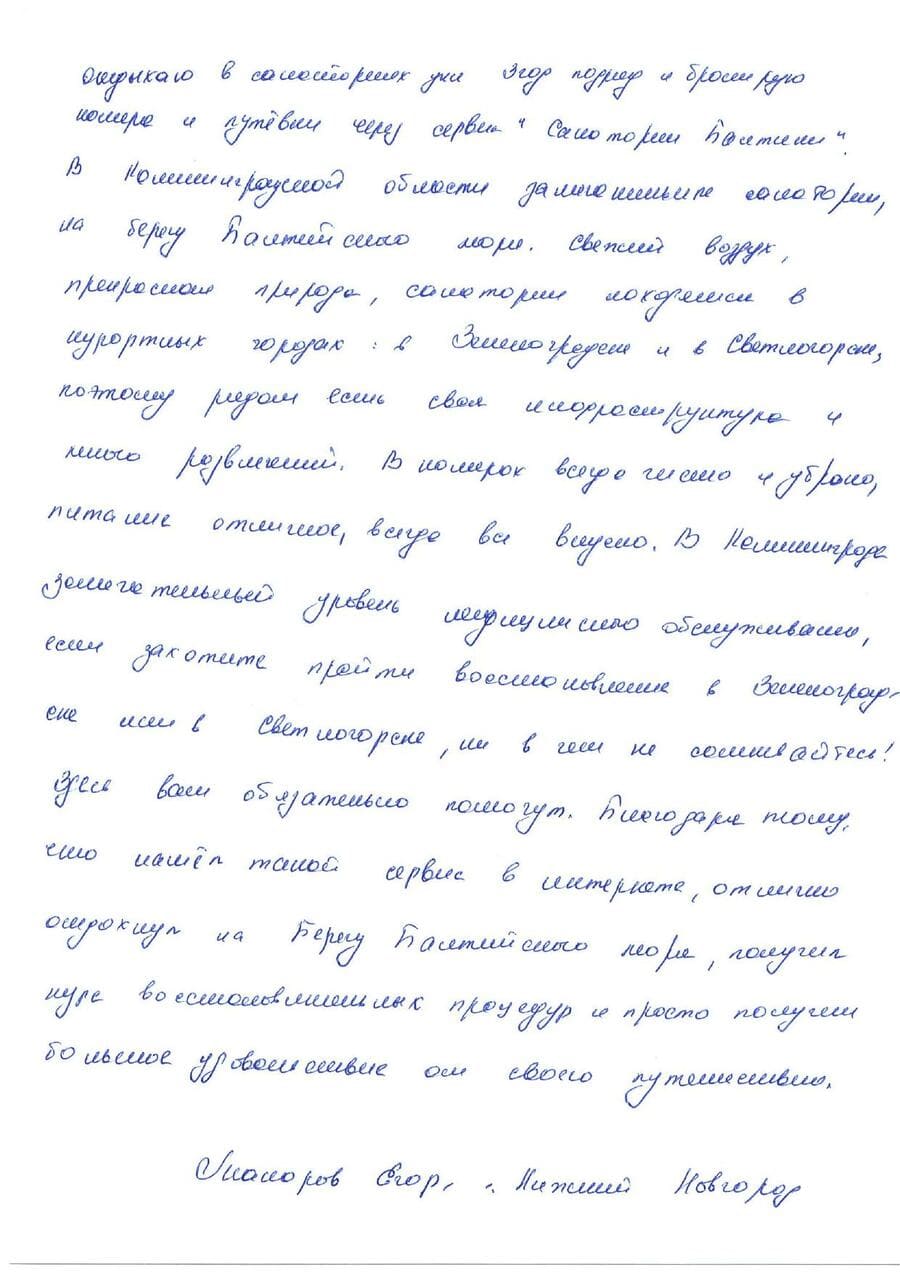 отдыхаю в санаториях уже 3 год подряд и бронирую
номера и путёвки через сервис "Санатории Балтики".
В Калининградской области замечательные санатории,
на берегу Балтийского моря. Свежий воздух,
прекрасная природа, санатории находятся в
курортных городах: в Зеленоградске и в Светлогорске,
поэтому рядом есть своя инфраструктура и
много развлечений. В номерах всегда чисто и убрано,
питание отличное, всегда все вкусно. В Калининграде
замечательный уровень медицинского обслуживания,
если захотите пройти восстановление в Зеленоград-
ске или в Светлогорске, ни в чем не сомневайтесь!
Здесь вам обязательно помогут. Благодаря тому,
что нашёл такой сервис в интернете, отлично
отдохнул на Берегу Балтийского моря, получил
курс восстановительных процедур и просто получил
большое удовольствие от своего путешествия.
Егор, г. Нижний Новгород